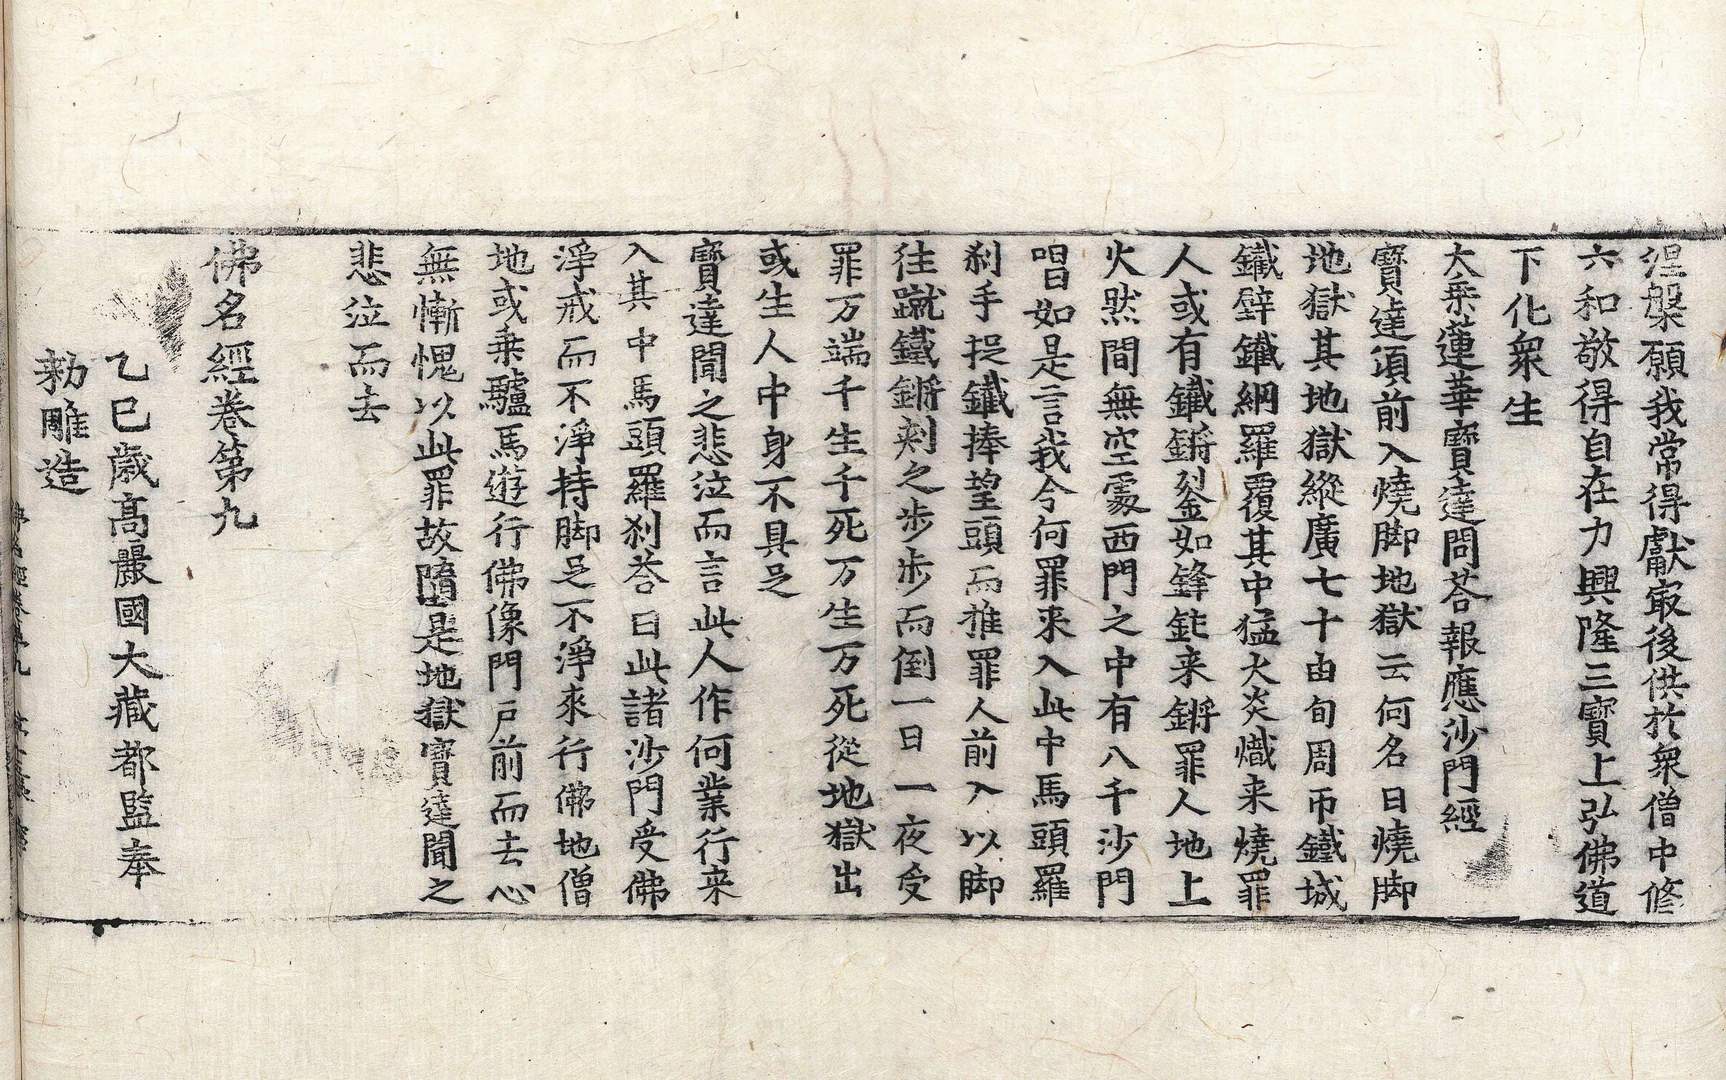 涅槃願我常得獻㝡後供於衆僧中修
六和敬得自在力興隆三寶上弘佛道
下化衆生
大乗蓮華寶達問荅報應沙門經
寶達湏前入燒脚地獄云何名曰燒脚
地獄其地獄縱廣七十由旬周帀鐵城
鐵壁鐵網羅覆其中猛火炎熾来燒罪
人或有鐵鏘𨥁如鋒鉾来鏘罪人地上
火然間無空䖏西門之中有八千沙門
唱如是言我今何罪来入此中馬頭羅
刹手捉鐵捧望頭而推罪人前入以脚
往蹴鐵鏘刾之步步而倒一日一夜受
罪万端千生千死万生万死從地獄出
或生人中身不具足
寶達聞之悲泣而言此人作何業行来
入其中馬頭羅刹荅曰此諸沙門受佛
淨戒而不淨持脚足不淨來行佛地僧
地或乗驢馬遊行佛像門戶前而去心
無慚愧以此罪故隨是地獄寶達聞之
悲泣而去
佛名經卷第九
乙巳歲高麗國大藏都監奉
勑雕造